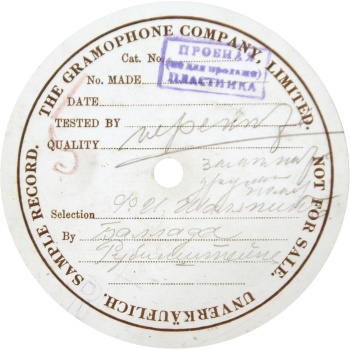 THE GRAMOPHONE COMPANY, LIMITED.
SAMPLE RECORD.
NOT FOR SALE.
UNVERKÄUFLICH.
Cat. No.
ПРОБНАЯ
(не для продажи)
ПЛАСТИНКА
No. MADE
DATE
TESTED BY
QUALITY
Selection Ф. И. Шаляпин
By Баллада
Рубинштейна